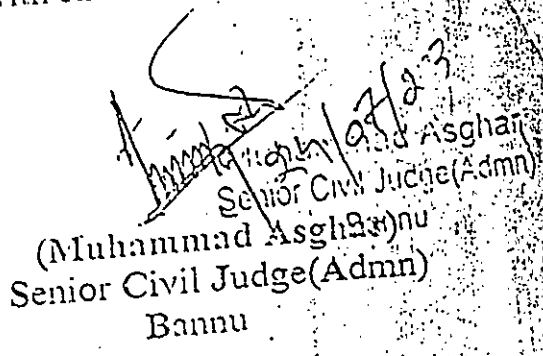 24/07/23
Asghar
Senior Civil Judge(Admn)
(Muhammad Asghar)
Senior Civil Judge(Admn)
Bannu